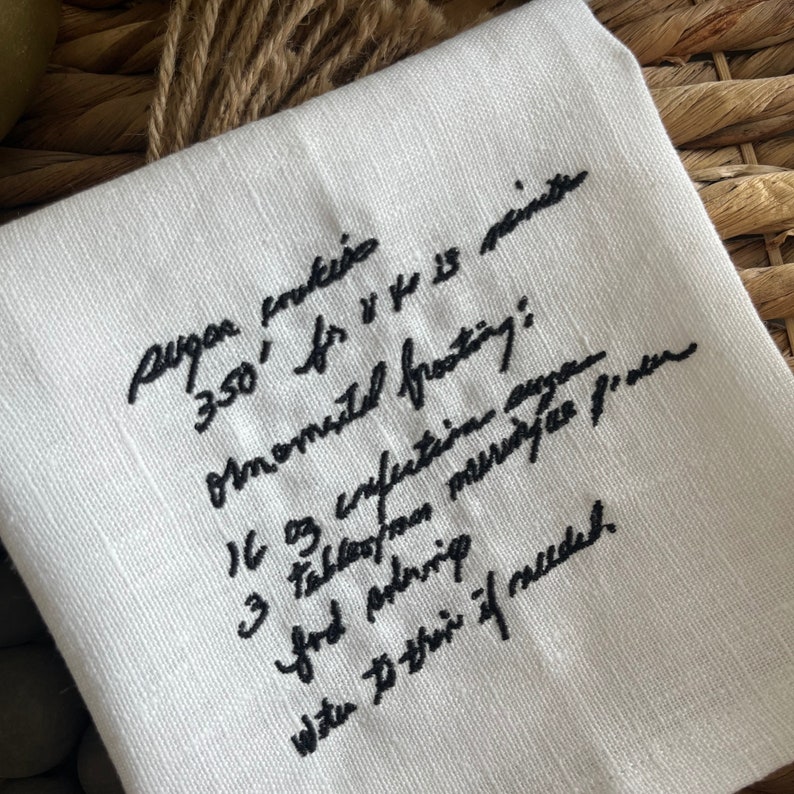 sugar cookies
350° for 11 to 13 minutes
ornamental frosting:
16 oz confection sugar
3 tablespoon meringue powder
food coloring
water to thin if needed.